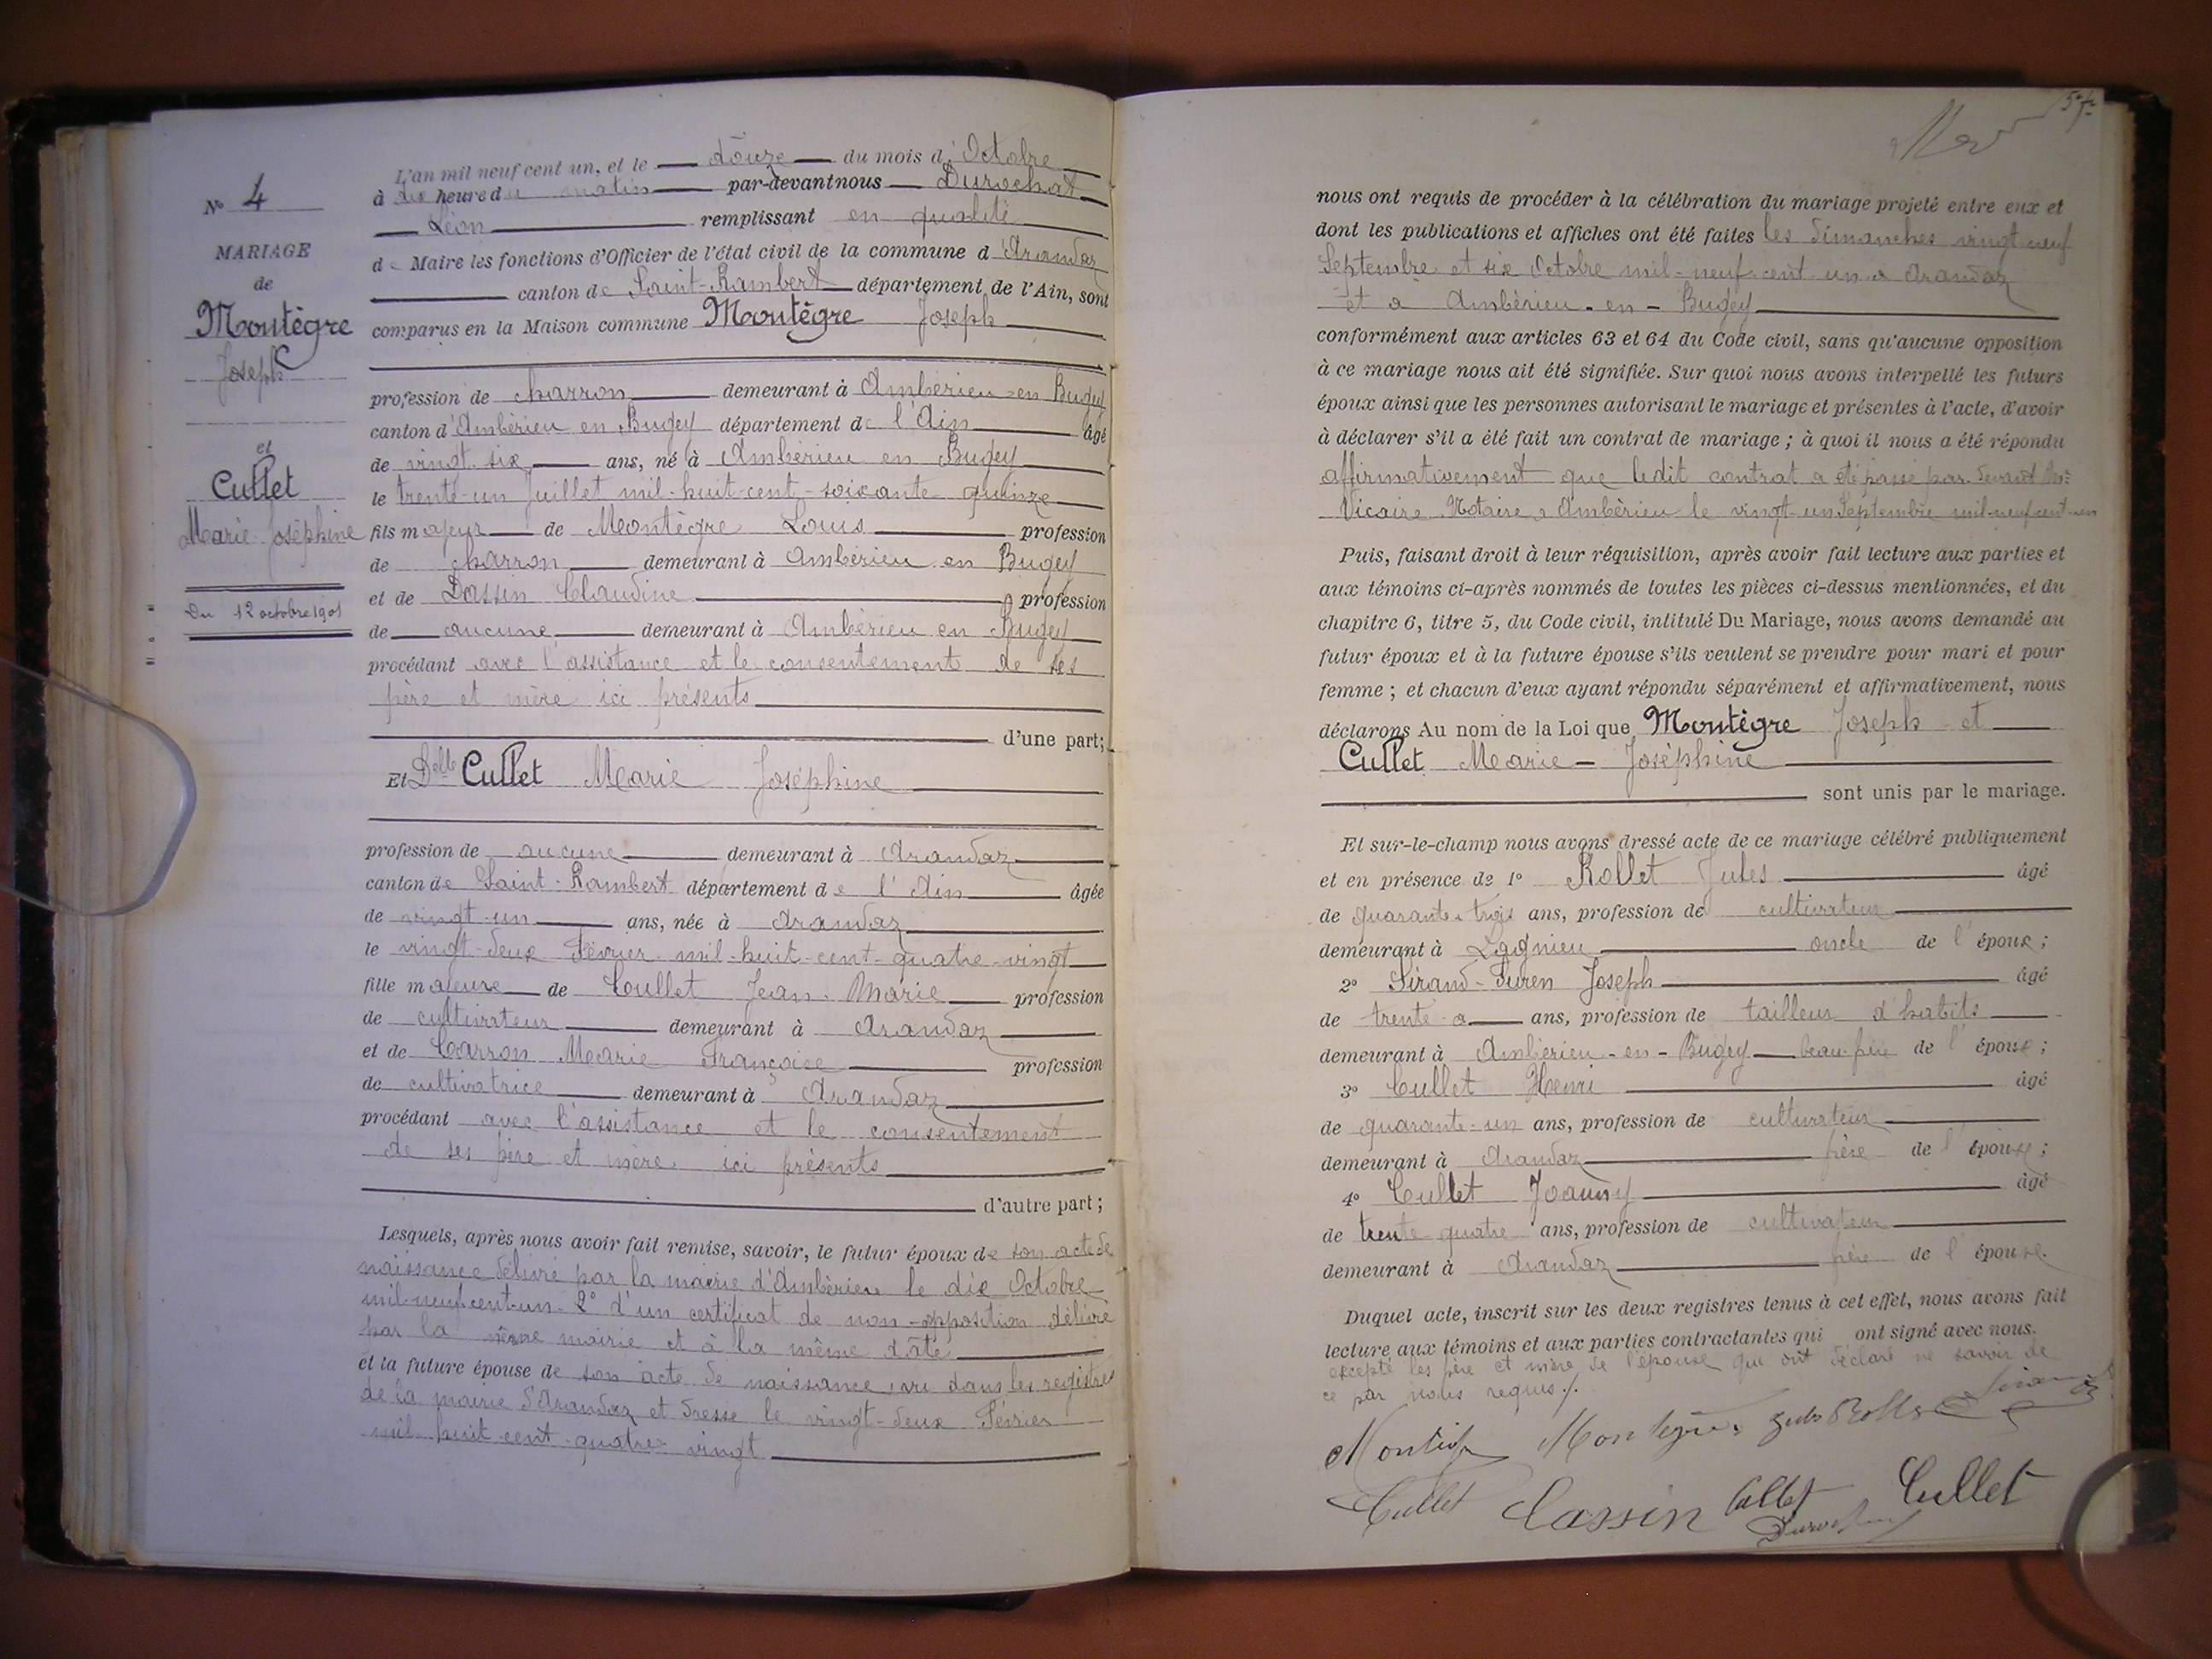 N° 4
MARIAGE
de
Montègre
Joseph
et
Cullet
Marie Joséphine
Du 12 octobre 1901
L'an mil neuf cent un, et le douze du mois d'Octobre
à dix heure du matin par-devant nous Durochat
Léon remplissant en qualité
de Maire les fonctions d'Officier de l'état civil de la commune d'Arandaz
canton de Saint-Rambert département de l'Ain, sont
comparus en la Maison commune Montègre Joseph
profession de charron demeurant à Ambérieu-en Bugey
canton d'Ambérieu en Bugey département de l'Ain âgé
de vingt six ans, né à Ambérieu en Bugey
le trente-un Juillet mil-huit-cent-soixante quinze
fils majeur de Montègre Louis profession
de charron demeurant à Ambérieu en Bugey
et de Dassin Claudine profession
de aucune demeurant à Ambérieu en Bugey
procédant avec l'assistance et le consentement de ses
père et mère ici présents
d'une part;
Et Delle Cullet Marie Joséphine
profession de aucune demeurant à Arandaz
canton de Saint-Rambert département de l'Ain âgée
de vingt-un ans, née à Arandaz
le vingt-deux Février mil-huit-cent-quatre-vingt
fille majeure de Cullet Jean-Marie profession
de cultivateur demeurant à Arandaz
et de Carron Marie Françoise profession
de cultivatrice demeurant à Arandaz
procédant avec l'assistance et le consentement
de ses père et mère ici présents
d'autre part;
Lesquels, après nous avoir fait remise, savoir, le futur époux de son acte de
naissance délivré par la mairie d'Ambérieu le dix Octobre
mil-neuf cent-un. 2° d'un certificat de non-opposition délivré
par la même mairie et à la même date
et la future épouse de son acte de naissance, vu dans les registres
de la mairie d'Arandaz et dressé le vingt-deux Février
mil huit cent quatre-vingt
57
nous ont requis de procéder à la célébration du mariage projeté entre eux et
dont les publications et affiches ont été faites les dimanches vingt neuf
Septembre et six Octobre mil-neuf-cent un à Arandaz
et à Ambérieu-en-Bugey
conformément aux articles 63 et 64 du Code civil, sans qu'aucune opposition
à ce mariage nous ait été signifiée. Sur quoi nous avons interpellé les futurs
époux ainsi que les personnes autorisant le mariage et présentes à l'acte, d'avoir
à déclarer s'il a été fait un contrat de mariage; à quoi il nous a été répondu
affirmativement que ledit contrat a été passé par-devant Me
Vicaire Notaire à Ambérieu le vingt-un Septembre mil-neuf cent-un
Puis, faisant droit à leur réquisition, après avoir fait lecture aux parties et
aux témoins ci-après nommés de toutes les pièces ci-dessus mentionnées, et du
chapitre 6, titre 5, du Code civil, intitulé Du Mariage, nous avons demandé au
futur époux et à la future épouse s'ils veulent se prendre pour mari et pour
femme; et chacun d'eux ayant répondu séparément et affirmativement, nous
déclarons Au nom de la Loi que Montègre Joseph et
Cullet Marie-Joséphine
sont unis par le mariage.
Et sur-le-champ nous avons dressé acte de ce mariage célébré publiquement
et en présence de 1° Rollet Jules âgé
de quarante-trois ans, profession de cultivateur
demeurant à Lagnieu oncle de l'époux;
2° Sirand-Puren Joseph âgé
de trente ans, profession de tailleur d'habits
demeurant à Ambérieu-en-Bugey beau-frère de l'époux;
3° Cullet Henri âgé
de quarante-un ans, profession de cultivateur
demeurant à Arandaz frère de l'épouse;
4° Cullet Joanny âgé
de trente quatre ans, profession de cultivateur
demeurant à Arandaz frère de l'épouse.
Duquel acte, inscrit sur les deux registres tenus à cet effet, nous avons fait
lecture aux témoins et aux parties contractantes qui ont signé avec nous.
excepté les père et mère de l'épouse qui ont déclaré ne savoir de
ce par nous requis./.
Montègre Montègre Jules Rollet Sirand
Cullet Cassin Cullet Cullet
Durochat